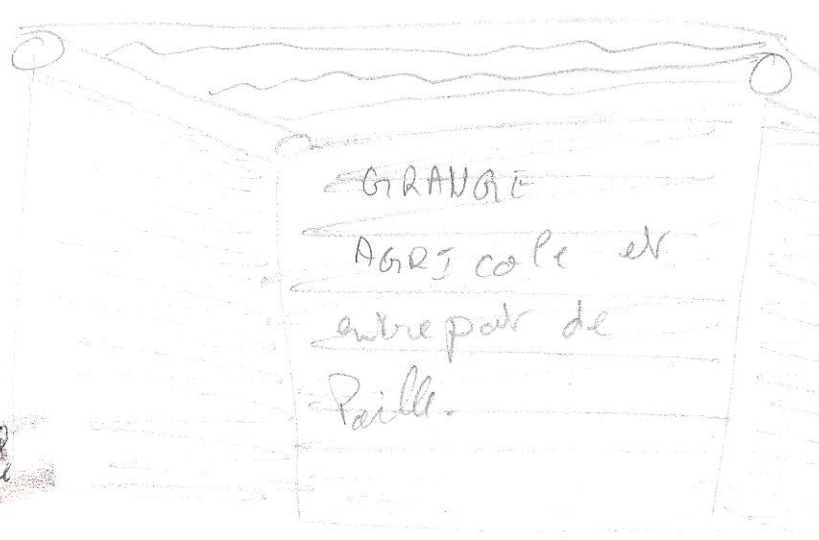 GRANGE
AGRIcole et
entrepot de
Paille.